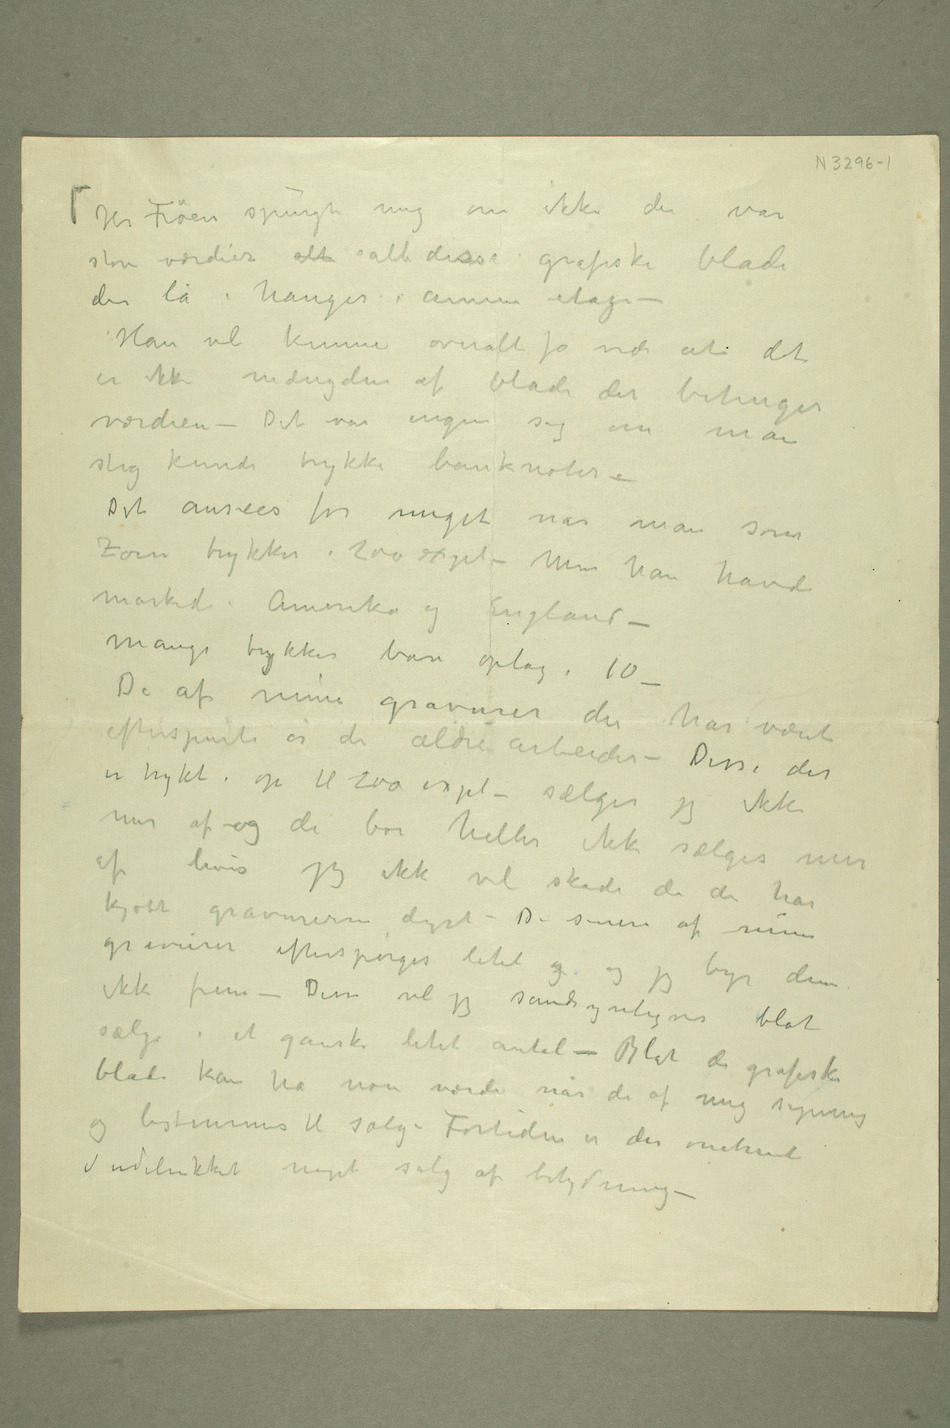 N3296-1
Hr Frøen spurgte mig om ikke der var
store værdier alt i alle disse grafiske blade
der lå i hauger i annen etage –
Han vil kunne overalt få vide at det
er ikke mængden af blade der betinger
værdien – Det var ingen sag om man
slig kunde trykke banknoter –
Det ansees for meget når man som
Zorn trykker i 200 expl – Men han havde
marked i Amerika og England –
Mange trykker bare oplag i 10 –
De af mine gravurer der har været
efterspurte er de ældre arbeider – Disse der
er trykt i op til 200 expl – sælger jeg ikke
mer af og de bør heller ikke sælges mer
af hvis jeg ikke vil skade de de har
kjøbt gravurerne dyrt – De senere af mine
gravurer efterspørges litet og og jeg byr dem
ikke frem – Disse vil jeg sandsynligvis blot
sælge i et ganske litet antal – Blot de grafiske
blade kan ha noen værdi når de af mig
og bestemmes til salg – Fortiden er der
udelukket noget salg af betydning –